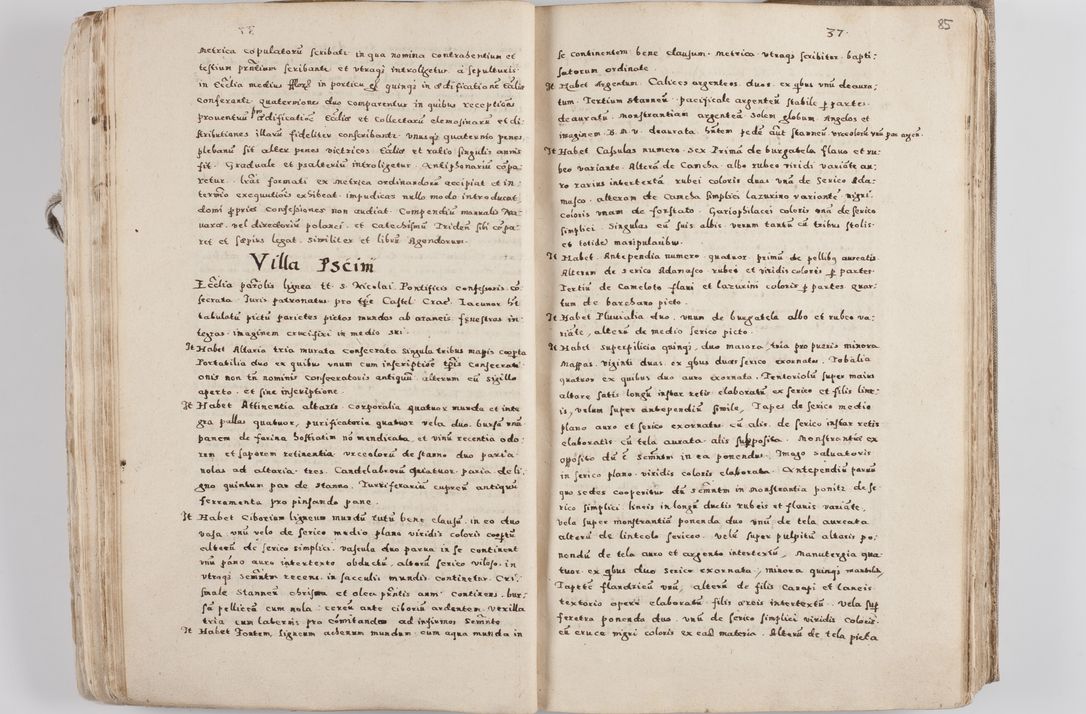 metrica copulatorū scribatr in qua nomina contrahentium et
testium pntium scribantr et vtraqs introligetur a sepulturis
in Ecclia medius in porticu quinqs in ædificationē Ecclie
conferantr quaterniones duo comparentur in quibus receptiōn
prouentuū pro ædificatiōe Ecclie et Collectarū elemosinarū et di:
stributiones illarū fideliter conscribantr vnusqs quaternio penes
plebanū sit alter penes victricos Ecclie et ratio singulis annis
fit. Graduale et psalteriū introligetur. Antiphonariū cōpa:
retur. lras formati ex metrica ordinandorū accipiat et in
termio exequutiōis exhibeat. impudicas nullo modo introducat
domi pprie confessiones non audiat. Compendiū manualis Na:
uarœ. vel directoriū polanci. et Catechismū Triden sibi cōpa:
ret et sæpius legat. Similiter et librū Agendorum.
Villa Pscim
Ecclia parōlis lignea tt. S. Nicolai Pontificis confessoris cō
secrata. Juris patronatus pro tpe Castel Crac. Lacunar ht
tabulatū pictū parietes pictos mundos ab araneis. fenestras in:
tegras. imaginem crucifixi in medio sui.
It Habet Altaria tria murata consecrata singula tribus mappis coopta
Portatilia duo ex quibus vnum cum inscriptiōe tpis consecrati
onis non tn nominis consecratoris antiquū. alterum cū sigillo
aperto. et sine inscriptione.
It Habet Attinentia altaris. corporalia quatuor munda et inte
gra pallas quatuor, purificatoria quatuor vela duo. bursā vnā
panem de farina hostiatim nō mendicata, et vinū recentia odo:
rem et saporem retinentia. vrceolorū de stanno duo paria.
nolas ad altaria. tres. Candelabrorū quatuor paria de li:
gno quintum par de stanno. Turriferariū cupreū antiquū
ferramenta pro pinsando pane.
It Habet Ciborium ligneum mundū tutū bene clausū. in eo duo
vasa vnū velo de serico medio plano viridis coloris coptū
alterū de serico simplici. vascula duo parua in se continent
vnū pāno auro intertexto obductū, alterū serico viloso. in
vtroqs semntm recens. in sacculi mundis continetur. Cri:
smale Stanneū chrisma et olea pntis anni continens. bur:
sā pelliceā cum nola. cereū ante ciboriū ardentem. vexilla
tria cum laternis pro comitando ad infirmos semnto
It Habet Fontem ligneum aheneum mundum cum aqua munda in
37.
85
se continentem bene clausum. metrica vtraqs scribitur bapti:
satorum ordinate.
It Habet Argentum. Calices argenteos duos. ex qbus vnū deaura:
tum. Tertium stanneū. pacificale argenteū stabile p partes
deauratū. monstrantiam argenteā Solem globum Angelos et
imaginem B. M. V. deaurata. hntem pedē aut stanneū vrceolorū vnū par argen.
It Habet Casulas numero sex Primā de burgatela flauo et ru:
beo variante. Alterā de Camcha albo rubeo viridi variātē au:
ro rarius intertextā rubei coloris duas vnā de serico Ada:
masco. alteram de camcha simplici lazurino variante nigri
coloris vnam de forstato. Gariophilacei coloris vnā de serico
simplici. Singulas cū suis albis. verum tantū cū tribus stolis
et totidē manipularibus.
It Habet Antependia numero quatuor. primū de pellibq auratis
Alterum de serico Adamasco rubeo et viridis coloris p partes.
Tertiū de Cameloto flaui et lazurini coloris p partes quar:
tum de barchano picto.
It Habet Pluuialia duo. vnum de burgatela albo et rubeo va:
riātē, alterū de medio serico picto.
It Habet superpilicia quinqs, duo maiora, tria pro pueris minora
Mappas viginti duas. ex qbus duas serico exornatas. Tobalia
quatuor ex quibus duo auro exornata. Tentoriolū super maius
altare satis longū instar retis elaboratū ex serico et filis line:
is, velum super antependiū simile, Tapes de serico medio
plano auro et serico exornatus cū alis. de serico instar retis
elaboratis cū tela aurata alis supposita. monstrantiæ ex
opposito dū ē semntm in ea ponendu, Imago saluatoris
in serico plano viridis coloris elaborata. Antependiū paruū
quo sedes cooperitur dū semntm in monstrantia ponitr de se:
rico simplici lineis in longū ductis rubeis et flauis variātē,
vela super monstrantiā ponenda duo vnū de tela aurata
alterū de linteolo sericeo. velū super pulpitū altaris po:
nendū de tela auro et argento intertextū, manutergia qua
tuor ex qbus duo serico exornata, minora quinqs
Tapetē flandricū vnū, alterū de filis Canapi et laneis
textorio opere elaboratū filis aureis intertextū. Vela sup
feretra ponenda duo. vnū de serico simplici viridis coloris
cū cruce nigri coloris ex eadē materia. Alterū de tela picta